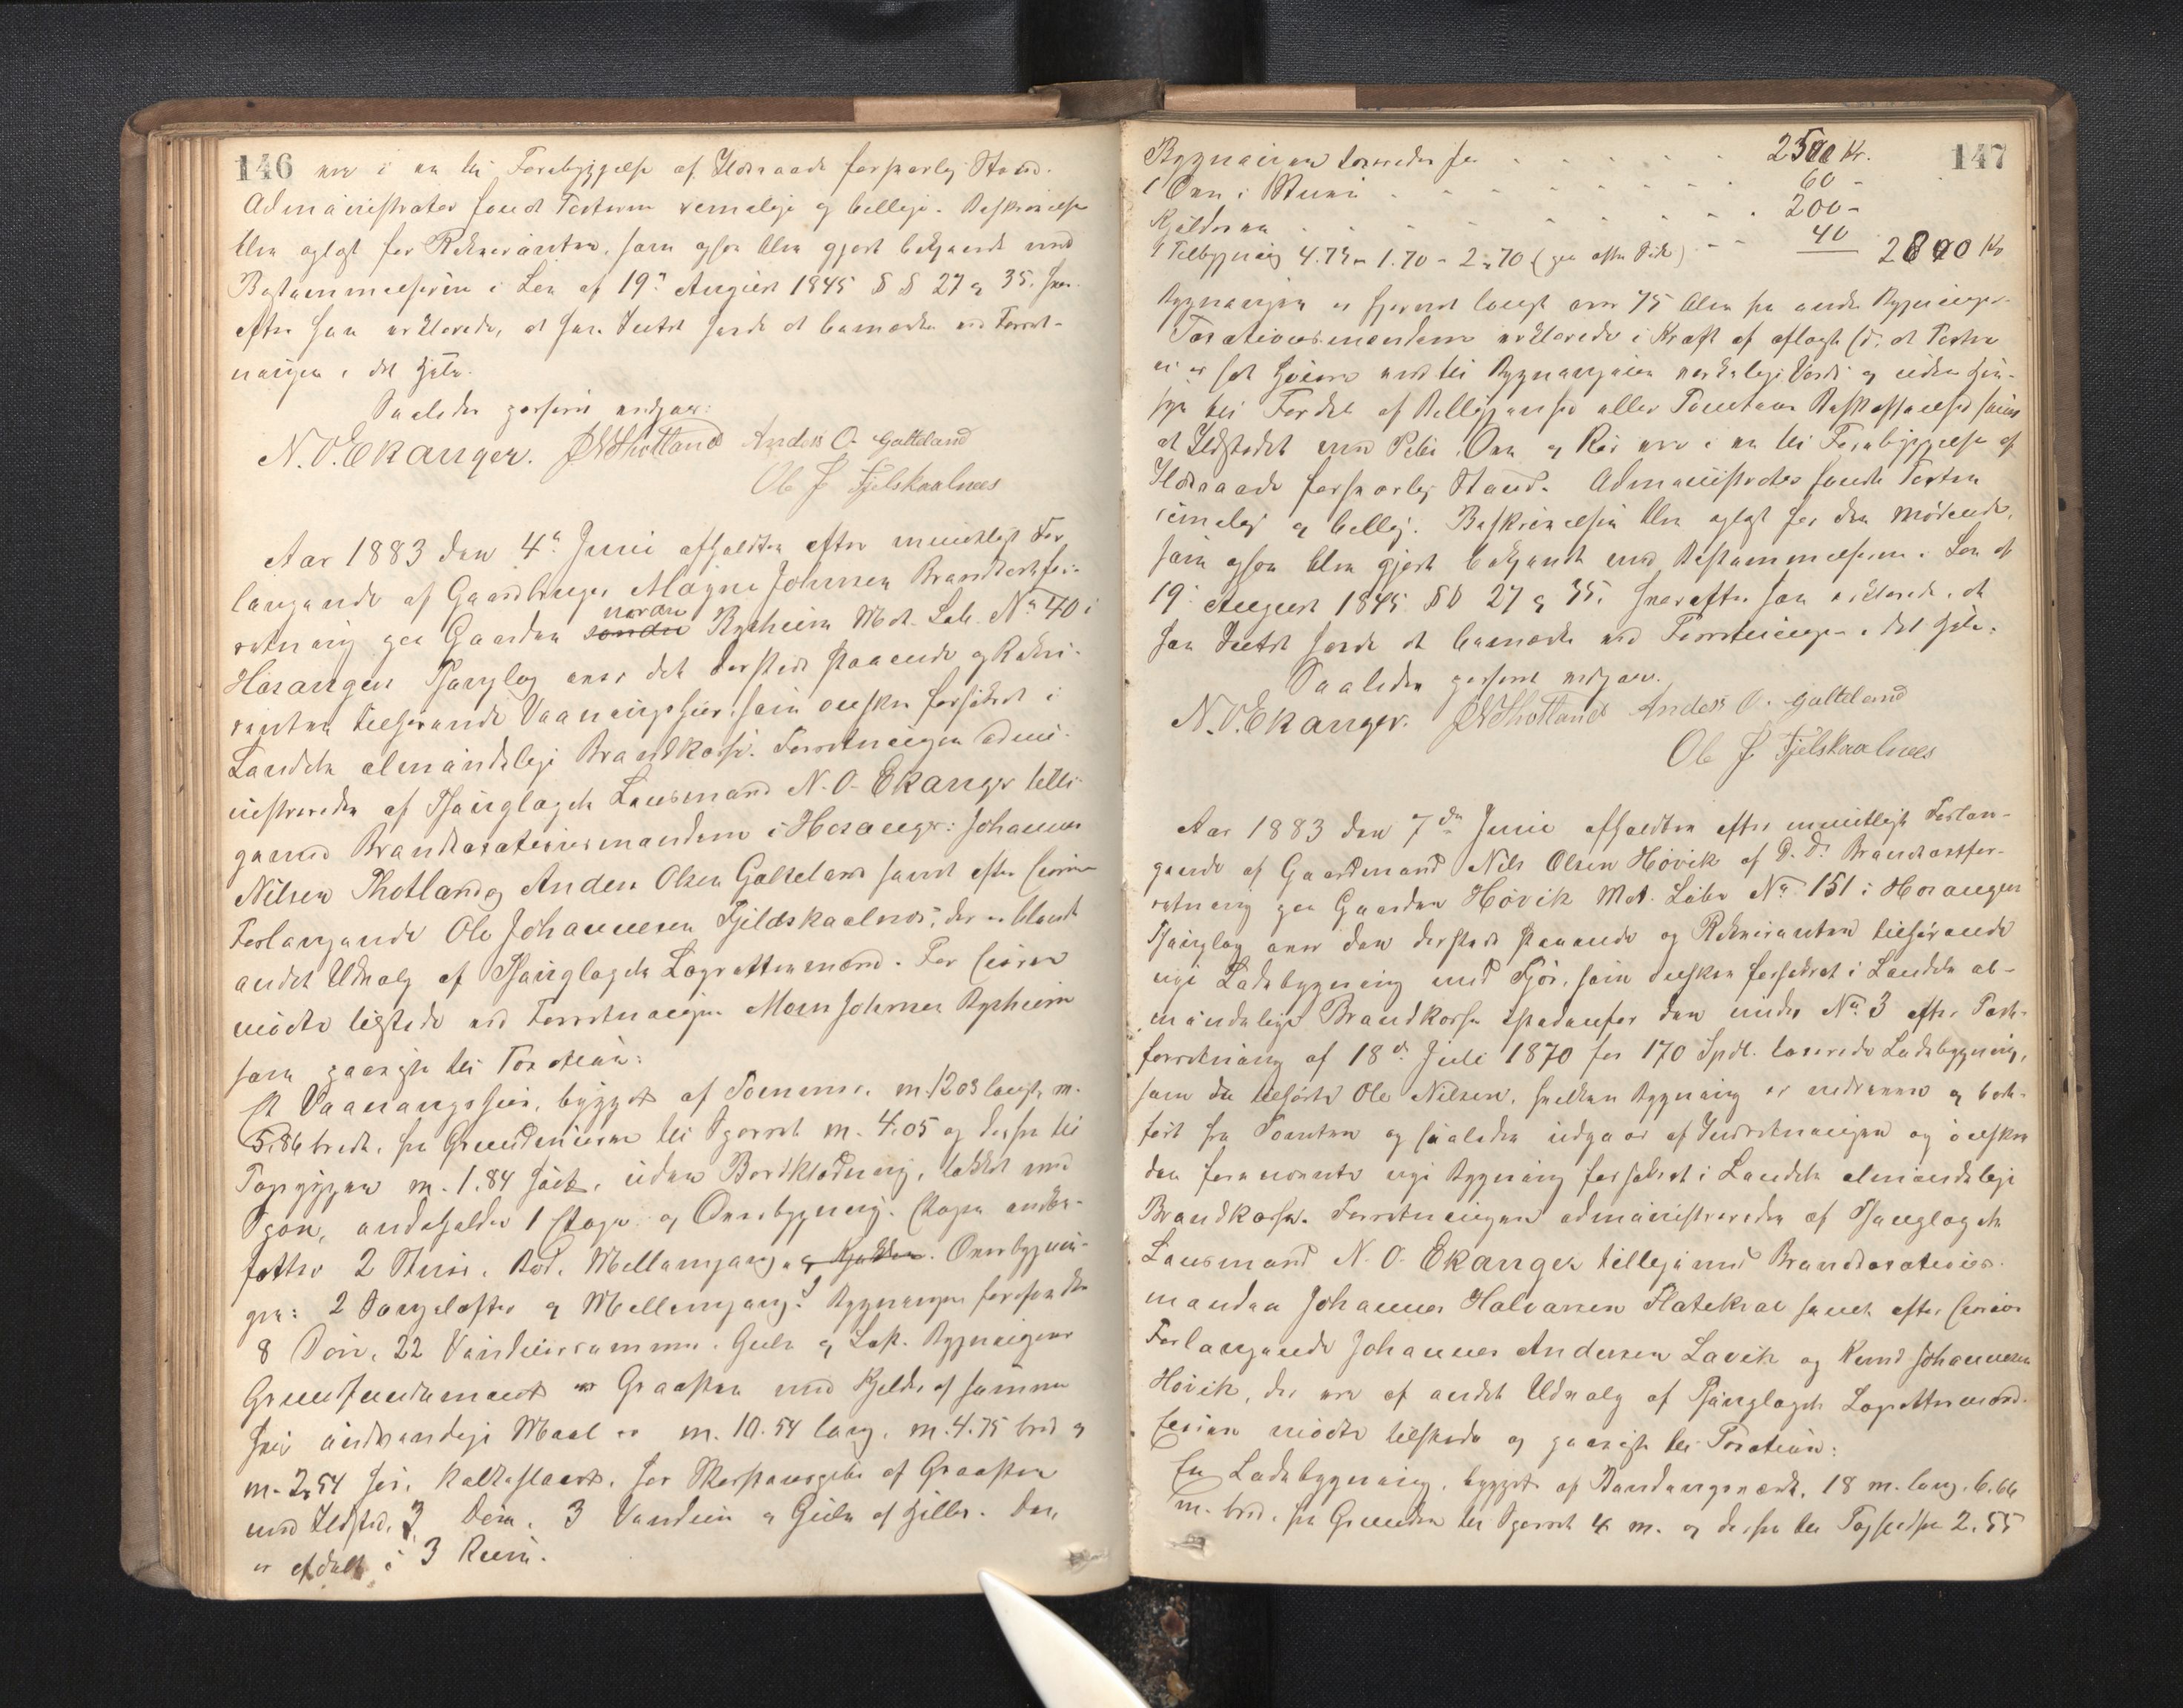 146
ere i en til Forebyggelse af Ildsvaade forsvarlig Stand.
Administrator fandt Taxterne rimelige og billige. Beskrivelsen
blev oplæst for Rekvirenten, som ogsaa blev gjort bekjendt med
Bestemmelserne i Lov af 19de August 1845 §§ 27 og 35, hvor-
efter han erklærede, at han Intet havde at bemærke ved Forret-
ningen i det Hele.
Saaledes passeret medgaaer:
N. O. Ekanger. JNThotland Anders O. Galteland
Ole J. Fjelskaalnes
Aar 1883 den 4de Juni afholdtes efter mundtligt For-
langende af Gaardbruger Magne Johnsen Brandtaxtfor-
retning paa Gaarden søndre nordre Rysheim Mat. Løb. No 40 i
Hosanger Thinglag over det dersteds staaende og Rekvi-
renten tilhørende Vaaningshuus, som ønskes forsikret i
Landets almindelige Brandkasse. Forretningen admi-
nistreredes af Thinglagets Lensmand N. O. Ekanger tilli-
gemed Brandtaxationsmændene i Hosanger: Johannes
Nilsen Thotland og Anders Olsen Galteland samt efter Eierens
Forlangende Ole Johannesen Fjeldskaalnes, der er blandt
andet Udvalg af Thinglagets Lagrettemænd. For Eieren
mødte tilstede ved Forretningen Mons Johnsen Rysheim
som paaviste til Taxation:
Et Vaaningshuus, bygget af Tømmer, m. 12.03 langt, m.
5.86 bredt, fra Grundmuren til Sperret m. 4.05 og derfra til
Tagryggen m. 1.84 høit, uden Bordklædning, tækket med
Spon, indeholder 1 Etage og Overbygning. Etagen inde-
fatter 2 Stuer, Bod, Mellemgang og Kjøkken. Overbygnin-
gen: 2 Sengelofter og Mellemgang. Bygningen forefindes
8 Døre, 22 Vinduesrammer, Gulv og Loft. Bygningens
Grundfundament er Graasten med Kjelder af samme
hvis indvendige Maal er m. 10.54 lang, m. 4.75 bred og
m. 2.54 høi, kalkslaaet, har Skorstenspibe af Graasten
med Ildsted, 3 Døre, 3 Vinduer og Gulv af Heller. Den
er afdelt i 3 Rum.
147
Bygningen taxeredes for . . . . . . 2500 Kr.
1 Ovn i Stuen . . . . . . . . . 60 -
Kjelderen . . . . . . . . . 200 -
1 Tilbygning 4.75 - 1.70 - 2,70 (paa østre Side) - - 40 2800 Kr
Bygningen er fjernet langt over 75 Alen fra andre Bygninger.
Taxationsmændene erklærede i Kraft af aflagt Ed, at Taxten
ei er sat høiere end til Bygningens virkelige Værdi og uden Hen-
syn til Fordel af Beliggenhed eller Tomtens Beskaffenhed samt
at Ildstedet med Pibe, Ovn og Rør ere i en til Forebyggelse af
Ildsvaade forsvarlig Stand. Administrator fandt Taxten
rimelig og billig. Beskrivelsen blev oplæst for den Mødende,
som ogsaa blev gjort bekjendt med Bestemmelserne i Lov af
19de August 1845 §§ 27 og 35, hvorefter han erklærede, at
han Intet havde at bemærke ved Forretningen i det Hele.
Saaledes passeret medgaaer.
N. O. Ekanger. JNThotland Anders O. Galteland
Ole J. Fjelskaalnes
Aar 1883 den 7de Juni afholdtes efter mundtligt Forlan-
gende af Gaardmand Nils Olsen Høvik af D. D. Brandtaxtfor-
retning paa Gaarden Høvik Mat. Løbe No 151 i Hosanger
Thinglag over den dersteds staaende og Rekvirenten tilhørende
nye Ladebygning med Fjøs, som ønskes forsikret i Landets al-
mindelige Brandkasse istedenfor den under No 3 efter Taxt-
forretning af 18de Juli 1870 for 170 Spdl. taxerede Ladebygning,
som da tilhørte Ole Nilsen, hvilken Bygning er nedreven og bort-
ført fra Tomten og saaledes udgaar af Indretningen og ønskes
den fornævnte nye Bygning forsikret i Landets almindelige
Brandkasse. Forretningen administreredes af Thinglagets
Lensmand N. O. Ekanger tilligemed Brandtaxations-
manden Johannes Halvorsen Flatekval samt efter Eierens
Forlangende Johannes Andersen Lavik og Knud Johannesen
Høvik, der ere af andet Udvalg af Thinglagets Lagrettemænd.
Eieren mødte tilstede og paaviste til Taxation:
En Ladebygning, bygget af Bindingsverk, 18 m. lang, 6.66
m. bred, fra Grunden til Sperret 4 m. og derfra til Taghøiden 2.55